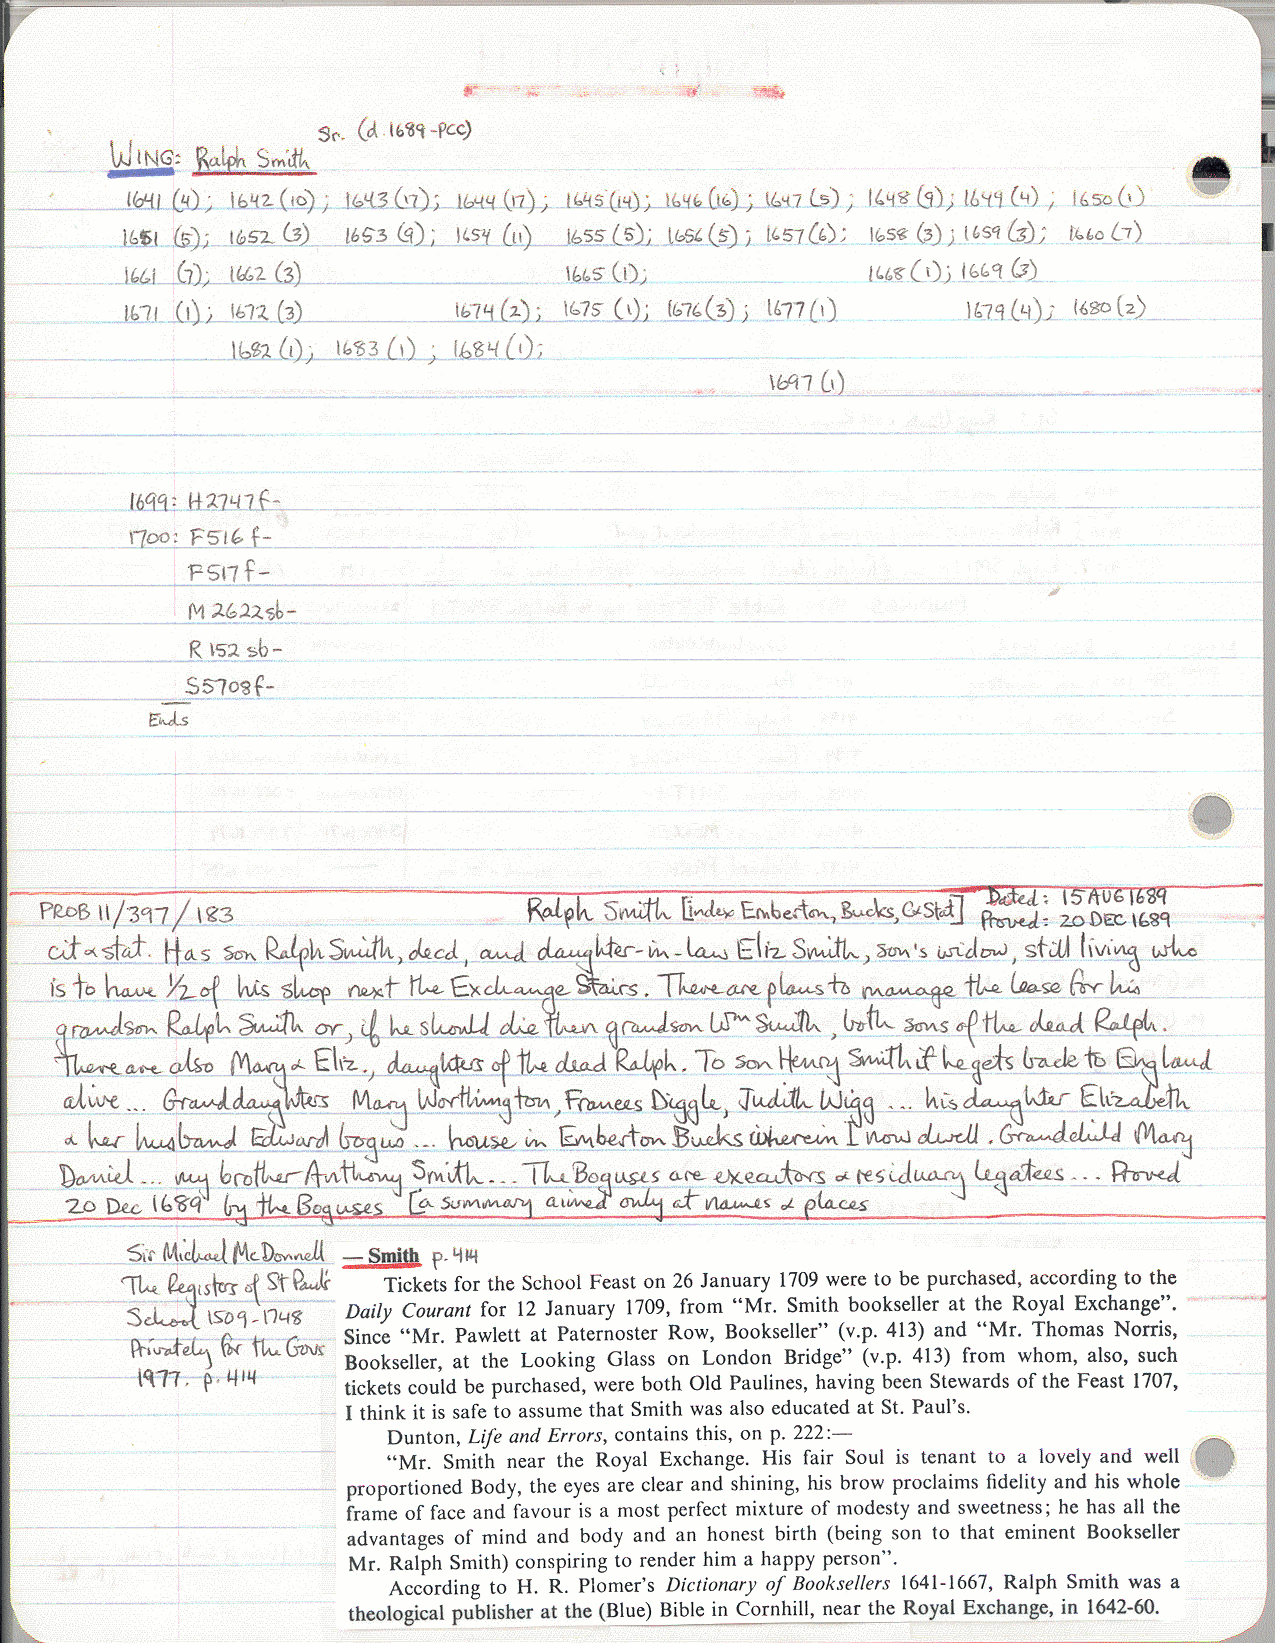 Sr. (d. 1689-PCC)
WING: Ralph Smith
1641 (4); 1642 (10); 1643 (17); 1644 (17); 1645 (14); 1646 (16); 1647 (5); 1648 (9); 1649 (4); 1650 (1)
1651 (5); 1652 (3) 1653 (9); 1654 (11) 1655 (5); 1656 (5); 1657 (6); 1658 (3); 1659 (3); 1660 (7)
1661 (7); 1662 (3) 1665 (1); 1668 (1); 1669 (3)
1671 (1); 1672 (3) 1674 (2); 1675 (1); 1676 (3); 1677 (1) 1679 (4); 1680 (2)
1682 (1); 1683 (1); 1684 (1);
1697 (1)
1699: H2747f-
1700: F516f-
F517f-
M2622sb-
R152sb-
S5708f-
Ends
PROB 11/397/183 Ralph Smith [index Emberton, Bucks, G&Stat] Dated: 15 AUG 1689
Proved: 20 DEC 1689
cit & stat. Has son Ralph Smith, decd, and daughter-in-law Eliz Smith, son's widow, still living who
is to have 1/2 of his shop next the Exchange Stairs. There are plans to manage the lease for his
grandson Ralph Smith or, if he should die then grandson Wm Smith, both sons of the dead Ralph.
There are also Mary & Eliz., daughters of the dead Ralph. To son Henry Smith if he gets back to England
alive... Granddaughters Mary Worthington, Frances Diggle, Judith Wigg... his daughter Elizabeth
& her husband Edward bogus... house in Emberton Bucks wherein I now dwell. Grandchild Mary
Daniel... my brother Anthony Smith... The Boguses are executors & residuary legatees... Proved
20 Dec 1689 by the Boguses [a summary aimed only at names & places
Sir Michael McDonnell
The Registers of St Paul's
School 1509-1748
Privately for the Govs
1977. p. 414
— Smith p. 414
Tickets for the School Feast on 26 January 1709 were to be purchased, according to the
Daily Courant for 12 January 1709, from “Mr. Smith bookseller at the Royal Exchange”.
Since “Mr. Pawlett at Paternoster Row, Bookseller” (v.p. 413) and “Mr. Thomas Norris,
Bookseller, at the Looking Glass on London Bridge” (v.p. 413) from whom, also, such
tickets could be purchased, were both Old Paulines, having been Stewards of the Feast 1707,
I think it is safe to assume that Smith was also educated at St. Paul's.
Dunton, Life and Errors, contains this, on p. 222:—
“Mr. Smith near the Royal Exchange. His fair Soul is tenant to a lovely and well
proportioned Body, the eyes are clear and shining, his brow proclaims fidelity and his whole
frame of face and favour is a most perfect mixture of modesty and sweetness; he has all the
advantages of mind and body and an honest birth (being son to that eminent Bookseller
Mr. Ralph Smith) conspiring to render him a happy person”.
According to H. R. Plomer's Dictionary of Booksellers 1641-1667, Ralph Smith was a
theological publisher at the (Blue) Bible in Cornhill, near the Royal Exchange, in 1642-60.